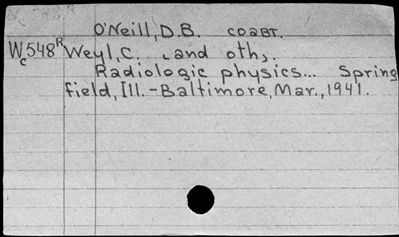 O'Neill, D.B. соавт.
Wc548R Weyl, C. and oth,.
Radiologic physics... Spring
field, Ill. - Baltimore, Mar., 1941.